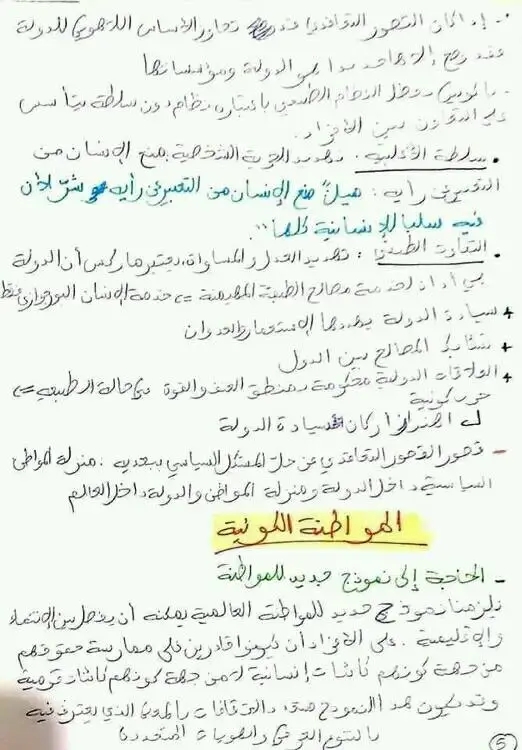 - إذا كان التصور التعاقدي قد نجح تجاوز الأساس اللاهوتي للدولة
فقد وضع إلاها جديدا هو الدولة ومؤسساتها
باكونين: رفض النظام الطبيعي باعتباره نظام دون سلطة يتأسس
على التعاون بين الأفراد.
• سلطة الأغلبية: تهديد الحرية الشخصية بمنع الإنسان من
التعبير عن رأيه: ميل: "منع الإنسان من التعبير عن رأيه هو شر لأن
فيه سلبا للإنسانية كلها".
• التفاوت الطبقي: تهديد العدل والمساواة، يعتبر ماركس أن الدولة
هي أداة لخدمة مصالح الطبقة المهيمنة => خدمة الإنسان البورجوازي فقط
+ سيادة الدولة يهددها الاستعمار والعدوان
+ تشابك المصالح بين الدول
+ العلاقات الدولية محكومة بمنطق العنف والقوة هي حالة الطبيعة =>
حرب كونية
ل اهتزاز أركان سيادة الدولة
- قصور التصور التعاقدي عن حل المشكل السياسي ببعديه: منزلة المواطن
السياسية داخل الدولة ومنزلة المواطن والدولة داخل العالم
المواطنة الكونية
- الحاجة إلى نموذج جديد للمواطنة
يلزمنا نموذج جديد للمواطنة العالمية يمكنه أن يفصل بين الانتماء
والإقليمية. على الأفراد أن يكونوا قادرين على ممارسة حقوقهم
من جهة كونهم كائنات إنسانية لا من جهة كونهم كائنات قومية
وقد يكون هذا النموذج متعدد الثقافات بالمعنى الذي يعترف فيه
بالتنوع العرقي والهويات المتعددة
5